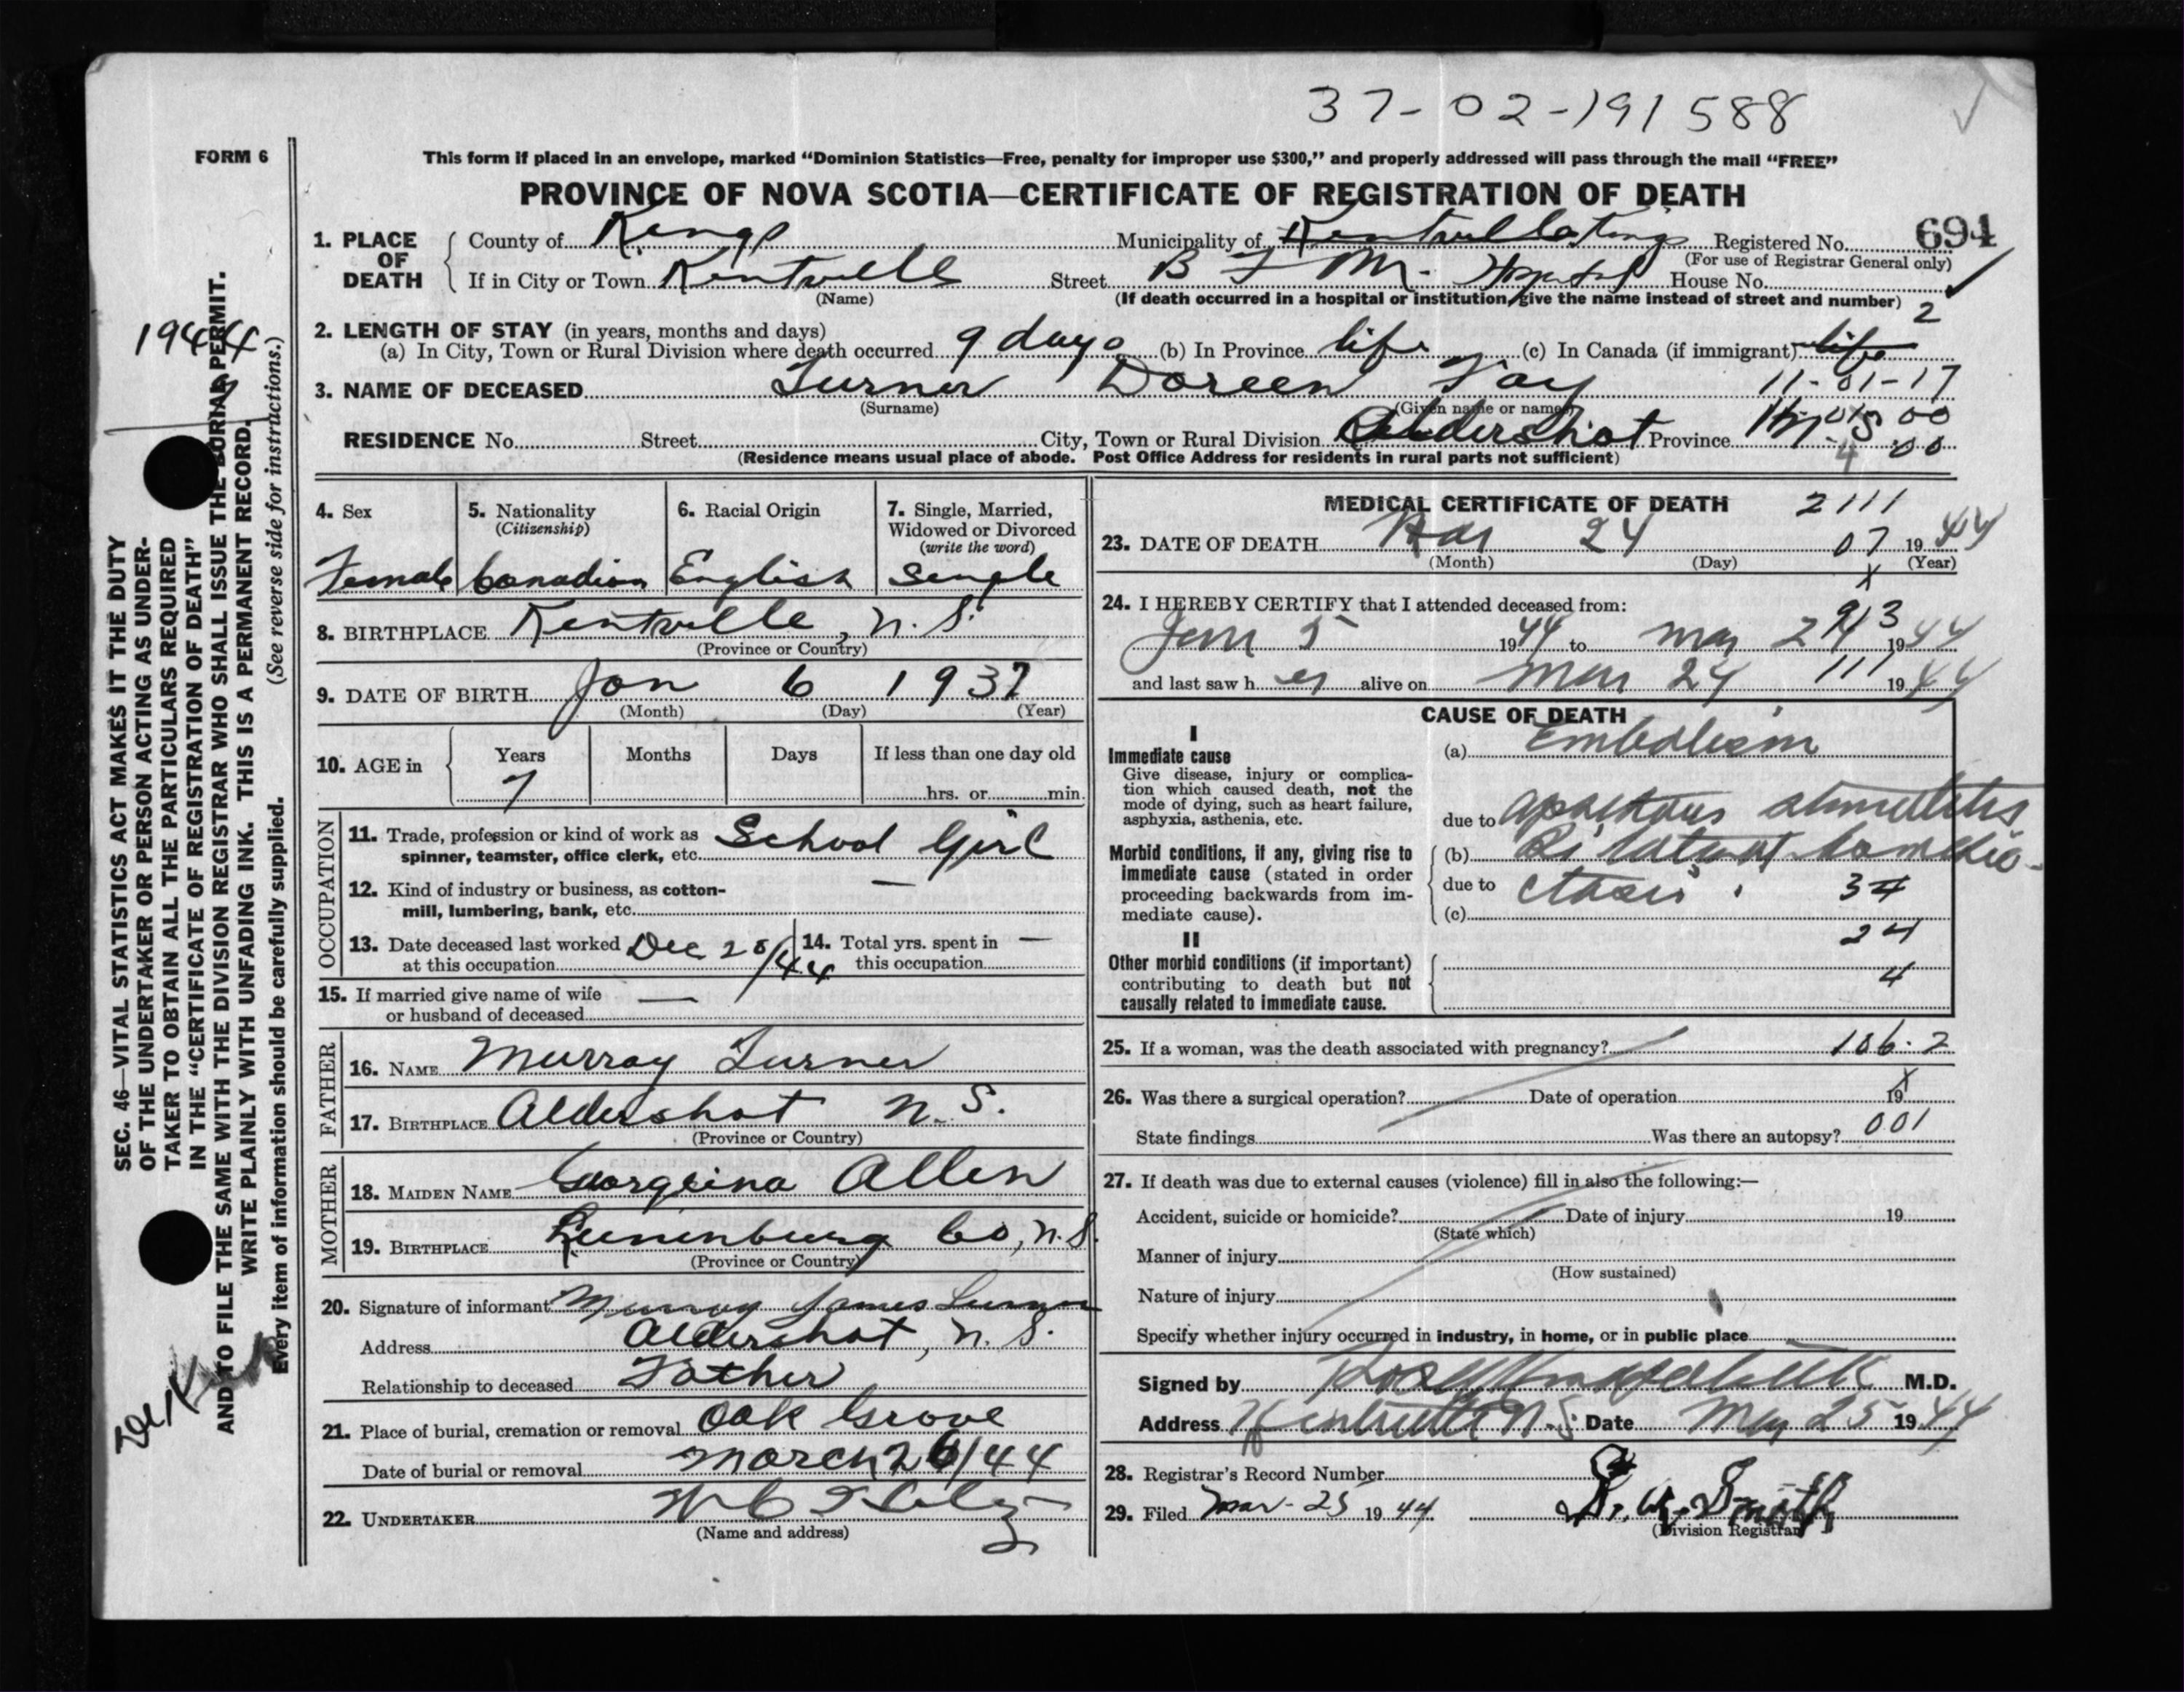 37-02-191588
FORM 6
This form if placed in an envelope, marked “Dominion Statistics—Free, penalty for improper use $300,” and properly addressed will pass through the mail “FREE”
PROVINCE OF NOVA SCOTIA—CERTIFICATE OF REGISTRATION OF DEATH
1. PLACE OF DEATH { County of Kings Municipality of Registered No. 694
(For use of Registrar General only)
If in City or Town Kentville Street B F M. Hospital House No.
(Name) (If death occurred in a hospital or institution, give the name instead of street and number) 2
2. LENGTH OF STAY (in years, months and days)
(a) In City, Town or Rural Division where death occurred 9 days (b) In Province life (c) In Canada (if immigrant) life
3. NAME OF DECEASED Turner Doreen Fay 11-01-17
(Surname) (Given name or names)
RESIDENCE No. Street City, Town or Rural Division Aldershot Province
(Residence means usual place of abode. Post Office Address for residents in rural parts not sufficient)
4. Sex 5. Nationality (Citizenship) 6. Racial Origin 7. Single, Married, Widowed or Divorced (write the word)
Female Canadian English Single
8. BIRTHPLACE Kentville, N.S.
(Province or Country)
9. DATE OF BIRTH Jan 6 1937
(Month) (Day) (Year)
10. AGE in { Years Months Days If less than one day old
7 hrs. or min.
OCCUPATION
11. Trade, profession or kind of work as spinner, teamster, office clerk, etc. School Girl
12. Kind of industry or business, as cotton-mill, lumbering, bank, etc. —
13. Date deceased last worked at this occupation Dec 20/44 14. Total yrs. spent in this occupation —
15. If married give name of wife or husband of deceased —
FATHER
16. NAME Murray Turner
17. BIRTHPLACE Aldershot N.S.
(Province or Country)
MOTHER
18. MAIDEN NAME Georgina Allen
19. BIRTHPLACE Lunenburg Co, N.S.
(Province or Country)
20. Signature of informant Murray James Turner
Address Aldershot, N.S.
Relationship to deceased Father
21. Place of burial, cremation or removal Oak Grove
Date of burial or removal March 26/44
22. UNDERTAKER
(Name and address)
MEDICAL CERTIFICATE OF DEATH 2111
23. DATE OF DEATH Mar 24 07 1944
(Month) (Day) (Year)
X
24. I HEREBY CERTIFY that I attended deceased from: 913
Jan 5 1944 to Mar 24 1944
and last saw her alive on Mar 24 111 1944
CAUSE OF DEATH
I
Immediate cause (a) Embolism
Give disease, injury or complication which caused death, not the mode of dying, such as heart failure, asphyxia, asthenia, etc.
due to stomatitis
Morbid conditions, if any, giving rise to immediate cause (stated in order proceeding backwards from immediate cause).
(b) Bilateral
due to ctasis 34
(c)
24
II
Other morbid conditions (if important) contributing to death but not causally related to immediate cause.
4
25. If a woman, was the death associated with pregnancy? 106.2
X
26. Was there a surgical operation? Date of operation 19
State findings Was there an autopsy? 001
27. If death was due to external causes (violence) fill in also the following:—
Accident, suicide or homicide? Date of injury 19
(State which)
Manner of injury
(How sustained)
Nature of injury
Specify whether injury occurred in industry, in home, or in public place
Signed by M.D.
Address Kentville N.S. Date Mar 25 1944
28. Registrar's Record Number
29. Filed Mar-25 1944 Smith
(Division Registrar)
SEC. 46—VITAL STATISTICS ACT MAKES IT THE DUTY
OF THE UNDERTAKER OR PERSON ACTING AS UNDER-
TAKER TO OBTAIN ALL THE PARTICULARS REQUIRED
IN THE “CERTIFICATE OF REGISTRATION OF DEATH”
AND TO FILE THE SAME WITH THE DIVISION REGISTRAR WHO SHALL ISSUE THE BURIAL PERMIT.
WRITE PLAINLY WITH UNFADING INK. THIS IS A PERMANENT RECORD.
Every item of information should be carefully supplied. (See reverse side for instructions.)
1944